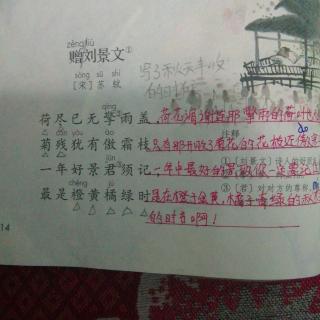 zèng liú
赠刘景文①
sòng sū shì
[宋] 苏轼
写了秋天丰收
的时节
qíng
荷尽已无擎雨盖,
荷花凋谢连那擎雨的荷叶也
jú cán yóu ào shuāng
菊残犹有傲霜枝
只有那开败了菊花的花枝还傲
注释
jūn xū
一年好景君须记
一年中最好的景致你一定要记
①〔刘景文〕诗人的好
③〔君〕对对方的尊称,
chéng jú
最是橙黄橘绿时
是在橙子金黄,橘子青绿的秋
的时节啊!
14